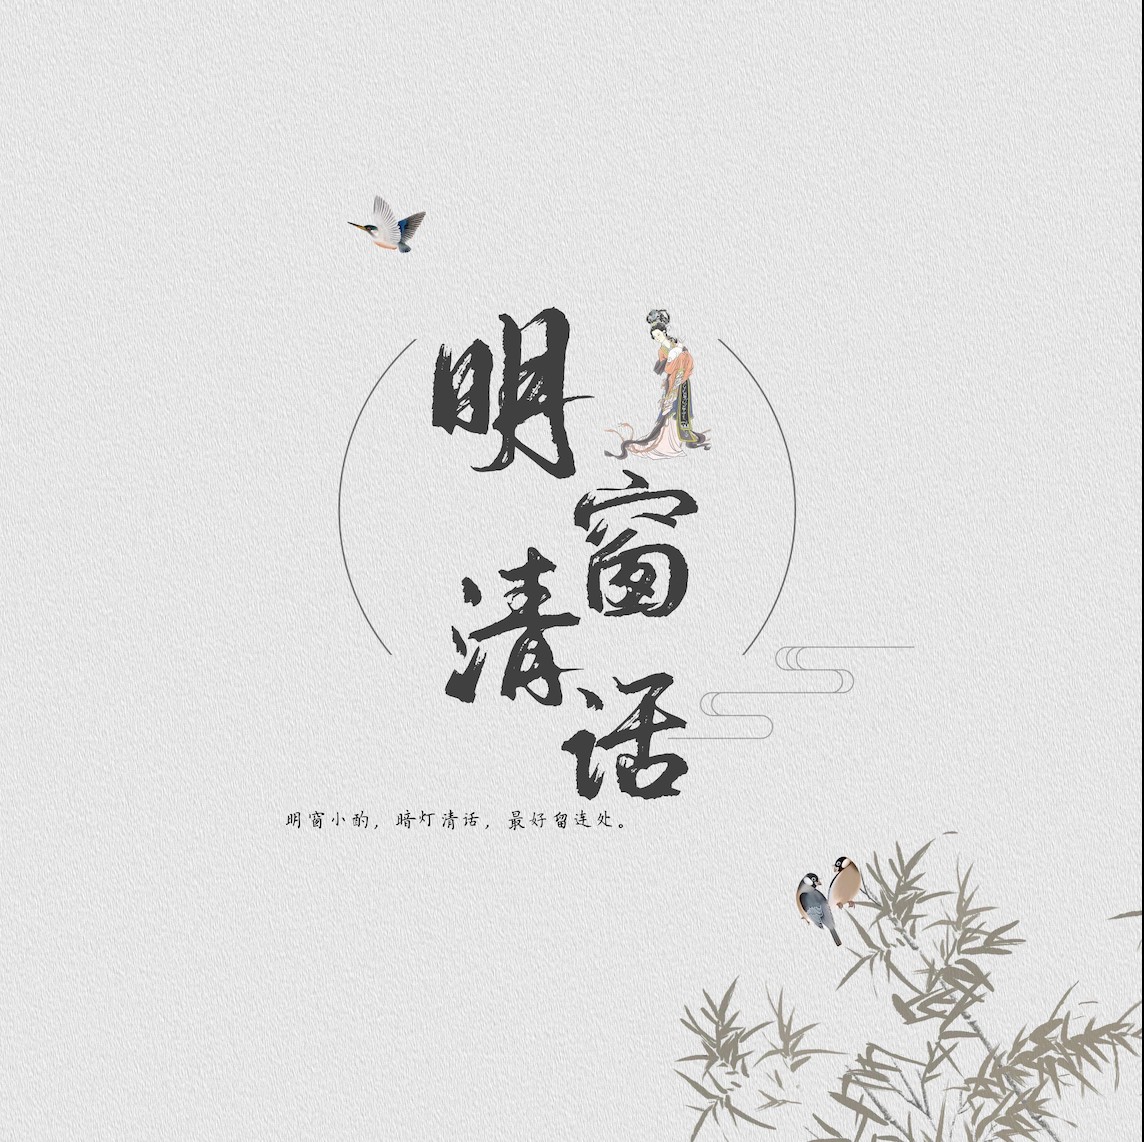 明窗清话
明窗小酌，暗灯清话，最好留连处。